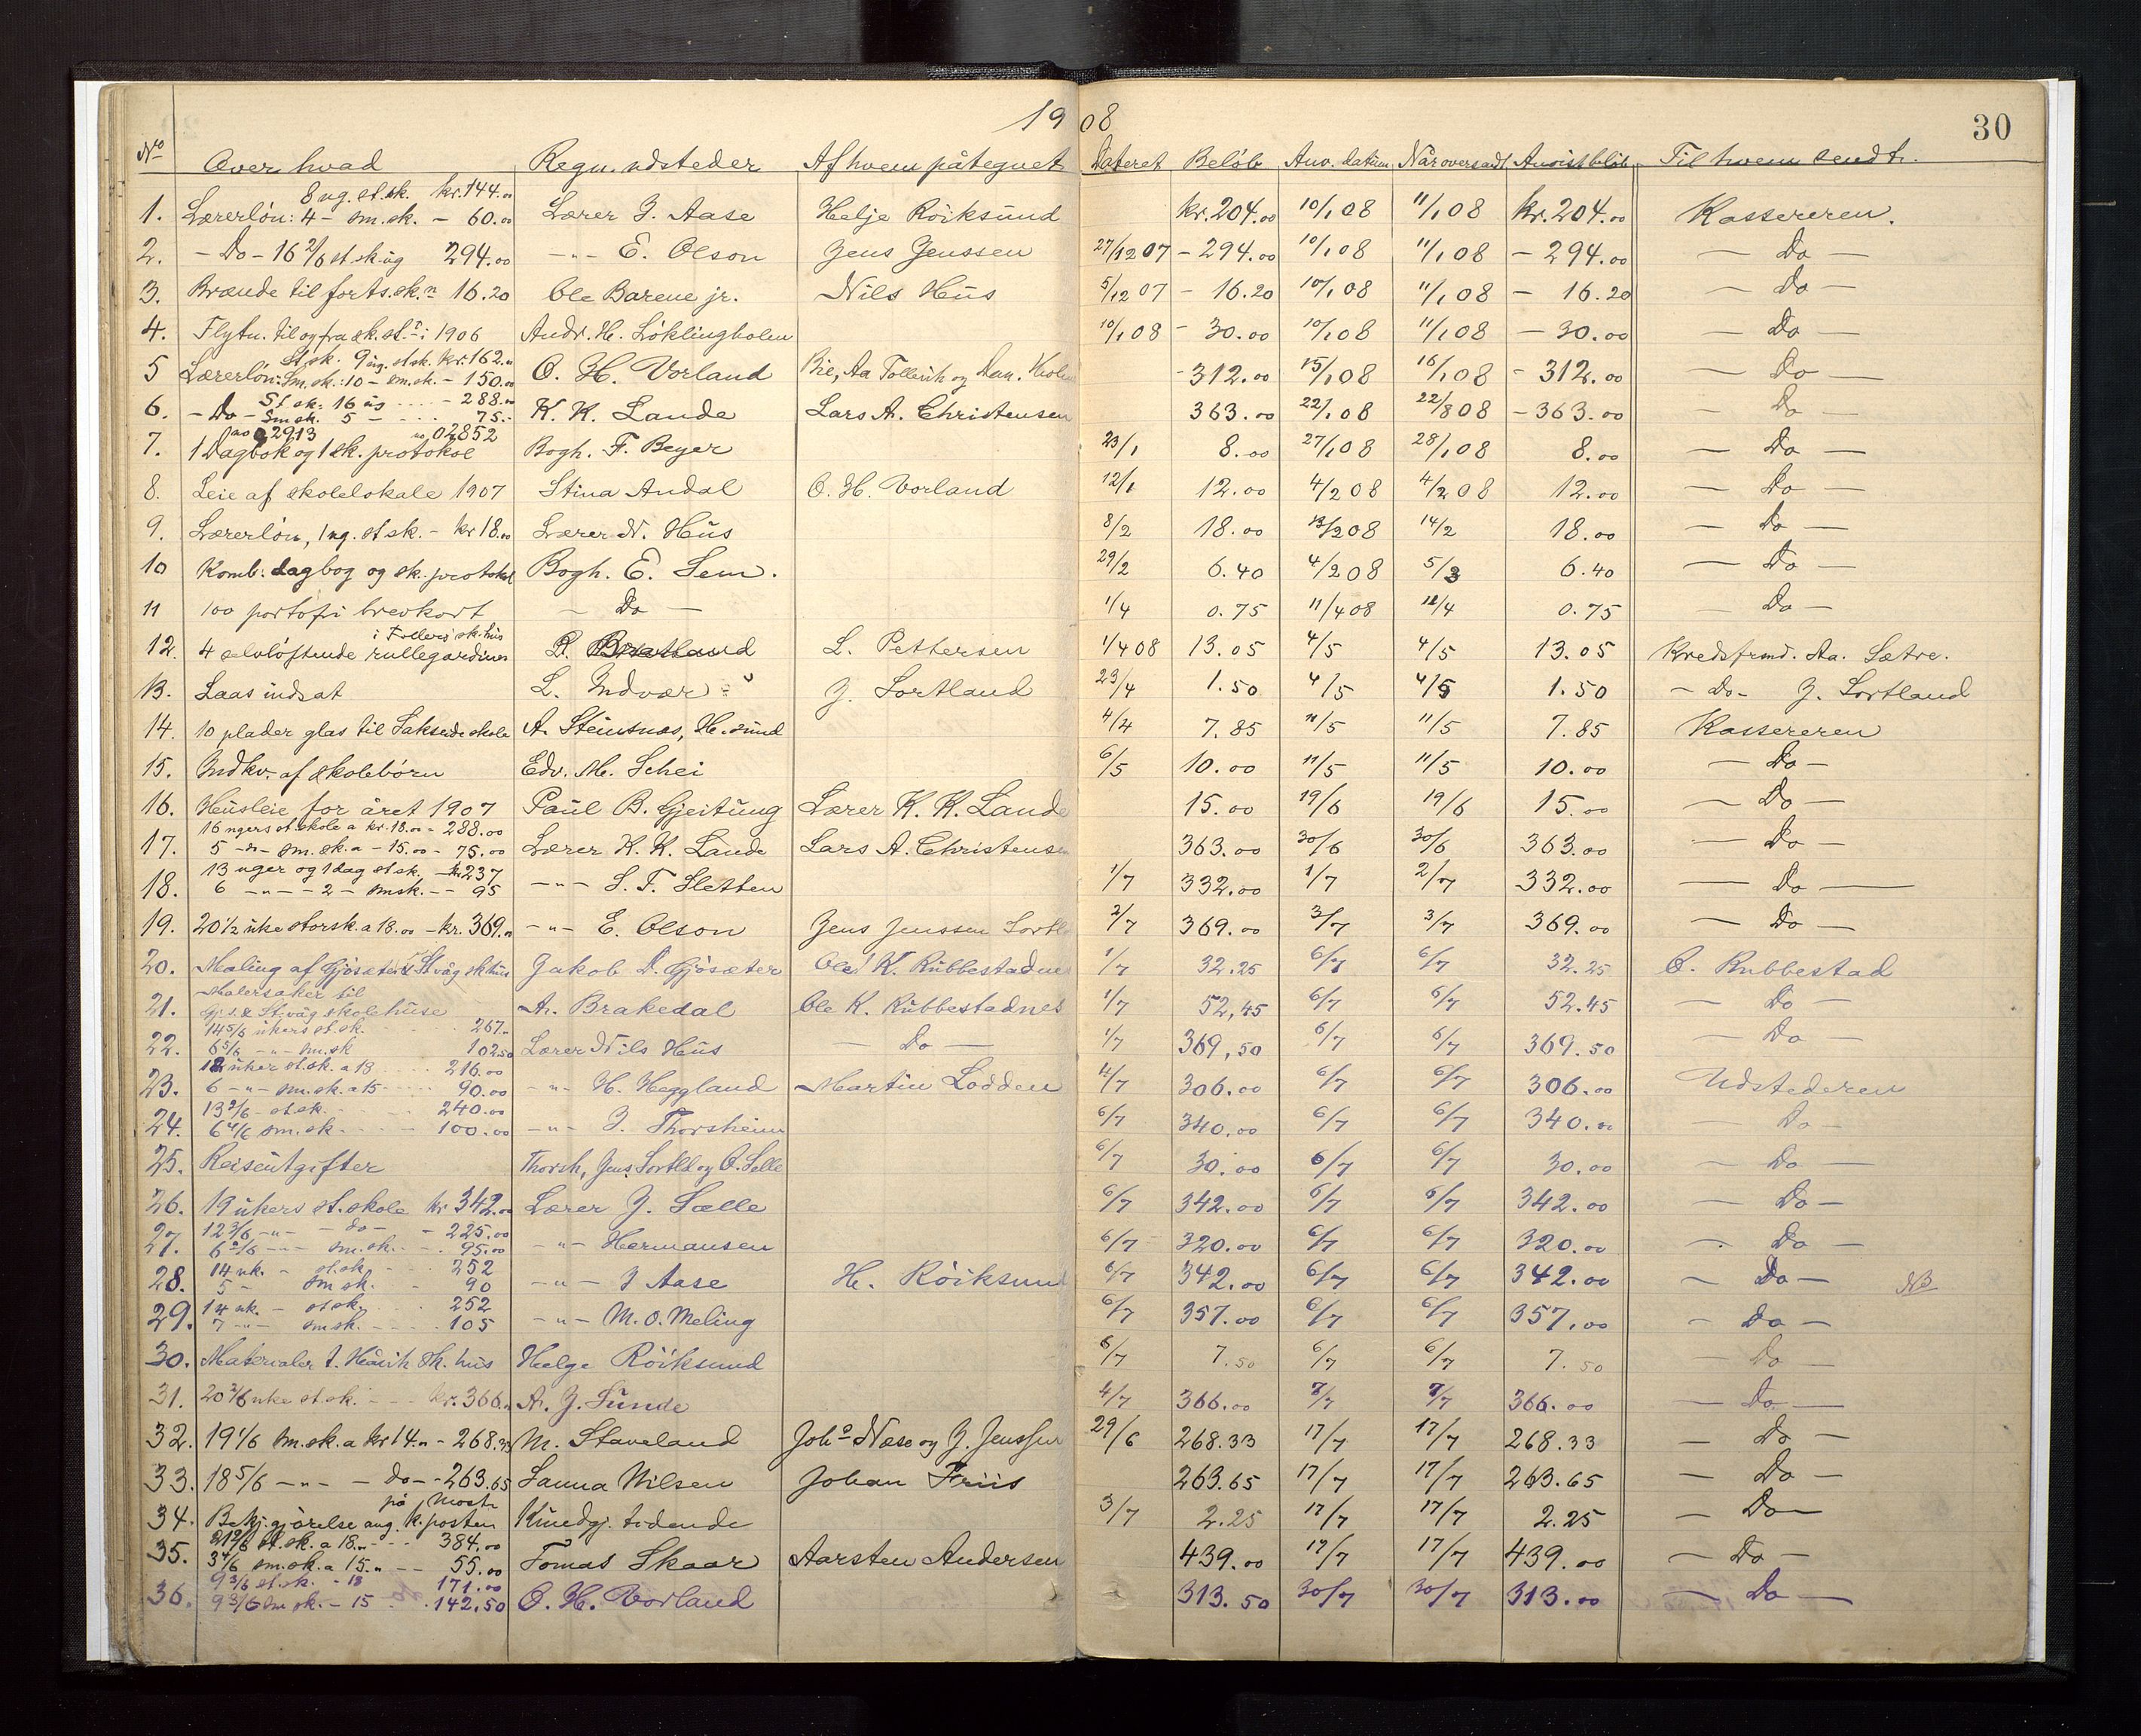 1908
30
No Over hvad Regn. udsteder Af hvem påtegnet Dateret Beløb Anv. datum Når oversendt Anvist beløb Til hvem sendt.
8 ug. st.sk. kr. 144.00
1. Lærerløn: 4 - sm.sk. - 60.00 Lærer J. Aase Helje Røiksund kr. 204.00 10/1 08 11/1 08 kr. 204.00 Kassereren.
2. - Do - 16 2/6 st.sk. ug 294.00 -"- E. Olson Jens Jenssen 27/12 07 - 294.00 10/1 08 11/1 08 - 294.00 - Do -
3. Brænde til forts.sk.n 16.20 Ole Barene jr. Nils Hüs 5/12 07 - 16.20 10/1 08 11/1 08 - 16.20 - Do -
4. Flytn. til og fra sk.st. i 1906 Andr. H. Løklingholm 10/1 08 - 30.00 10/1 08 11/1 08 - 30.00 - Do -
St.sk. 9 ug. st.sk. kr. 162.00
5 Lærerløn: Sm.sk.: 10 - sm.sk. - 150.00 O. H. Vorland - 312.00 15/1 08 16/1 08 - 312.00 - Do -
St.sk. 16 ug - 288.00
6. - Do - Sm.sk. 5 - 75.- K. K. Lande Lars A. Christensen 363.00 22/1 08 22/8 08 - 363.00 - Do -
no 2913 no 02852
7. 1 Dagbok og 1 sk. protokol Bogh. F. Beyer 23/1 8.00 27/1 08 28/1 08 8.00 - Do -
8. Leie af skolelokale 1907 Stina Andal O. H. Vorland 12/1 12.00 4/2 08 4/2 08 12.00 - Do -
9. Lærerløn, 1 ug. st.sk. - kr 18.00 Lærer N. Hüs 8/2 18.00 13/2 08 14/2 18.00 - Do -
10 Komb: dagbog og sk. protokol Bogh. E. Sem. 29/2 6.40 4/2 08 5/3 6.40 - Do -
11 100 portofri brevkort - Do - 1/4 0.75 11/4 08 12/4 0.75 - Do -
i sk.hüs
12. 4 selvløftende rullegardiner L. Pettersen 1/4 08 13.05 4/5 4/5 13.05 Kredsfrmd. Aa. Sætre.
13. Laas indsat L. Indvær J. Sortland 23/4 1.50 4/5 4/5 1.50 - Do - J. Sortland
14. 10 plader glas til Sakseide skole A. Steinsnæs, H.sund 4/4 7.85 11/5 11/5 7.85 Kassereren
15. Indkv. af skolebørn Edv. M. Schei 6/5 10.00 11/5 11/5 10.00 - Do -
16. Hüsleie for året 1907 Paül B. Gjeitüng Lærer K. K. Lande 15.00 19/6 19/6 15.00 - Do -
16 ugers st.skole a kr. 18.00 - 288.00
17. 5 -"- sm.sk. a - 15.00 - 75.00 Lærer K. K. Lande Lars A. Christensen 363.00 30/6 30/6 363.00 - Do -
13 uger og 1 dag st.sk. - kr 237
18. 6 -"- - 2 - sm.sk. - - 95 -"- S. T. Sletten 1/7 332.00 1/7 2/7 332.00 - Do -
19. 20 1/2 uke storsk. a 18.00 - kr. 369.00 -"- E. Olson Jens Jenssen 2/7 369.00 3/7 3/7 369.00 - Do -
20. Maling af Gjøsæter & St.våg skhüs Jakob D. Gjøsæter Ole K. Rübbestadnes 1/7 32.25 6/7 6/7 32.25 O. Rubbestad
Malersaker til
21. Gj.s. & St.våg skolehüse A. Brakedal Ole K. Rübbestadnes 1/7 52,45 6/7 6/7 52.45 - Do -
14 5/6 ükers st.sk. 267.-
22. 6 5/6 -"- sm.sk 102.50 Lærer Nils Hüs - Do - 1/7 369,50 6/7 6/7 369.50 - Do -
12 üker st.sk. a 18 216.00
23. 6 -"- sm.sk. a 15 90.00 -"- H. Heggland Martin Lodden 4/7 306.00 6/7 6/7 306.00 Udstederen
13 2/6 - st.sk. 240.00
24. 6 4/6 sm.sk 100.00 -"- J. Thorsheim 6/7 340.00 6/7 6/7 340.00 - Do -
25. Reiseütgifter Thorsh, Jens Sortld og O. Selle 6/7 30.00 6/7 6/7 30.00 - Do -
26. 19 ükers st.skole kr 342.00 Lærer J. Sælle 6/7 342.00 6/7 6/7 342.00 - Do -
12 3/6 -"- - do - - 225.00
27. 6 2/6 -"- sm.sk. - 95.00 -"- Hermansen 6/7 320.00 6/7 6/7 320.00 - Do -
14 uk. - st.sk. 252
28. 5 - sm sk. 90 -"- J Aase H. Röiksund 6/7 342.00 6/7 6/7 342.00 - Do - NB
14 uk. - st.sk. 252
29. 7 -"- sm.sk. 105 -"- M. O. Meling 6/7 357.00 6/7 6/7 357.00 - Do -
30. Materialer t. sk. hüs Helge Röiksund 6/7 7.50 6/7 6/7 7.50 - Do -
31. 20 2/6 uke st.sk. - kr. 366.00 A. J. Sünde 4/7 366.00 7/7 7/7 366.00 - Do -
32. 19 1/6 sm.sk. a kr 14.00 - 268.33 M. Staveland Joh. Næse og J. Jenssen 29/6 268.33 17/7 17/7 268.33 - Do -
33. 18 5/6 -"- - do - - 263.65 Sanna Nilsen Johan Friis 263.65 17/7 17/7 263.65 - Do -
på Mostr
34. Bekj.gjørelse ang. k.posten Kundgj. tidende 3/7 2.25 17/7 17/7 2.25 - Do -
21 2/6 st.sk. a 18.00 384.00
35. 3 4/6 sm.sk. a 15.00 - - 55.00 Tomas Skaar Aarsten Andersen 439.00 17/7 17/7 439.00 - Do -
9 3/6 st.sk. - 18 171.00
36. 9 3/6 sm sk. - 15 142.50 O. H. Vorland 313.50 30/7 30/7 313.00 - Do -